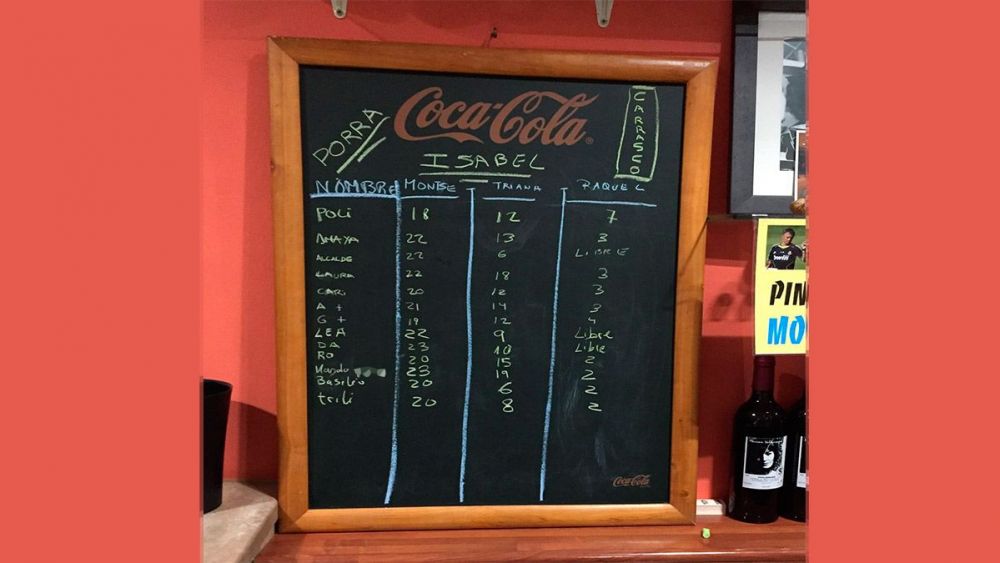 PORRA
Coca-Cola
CARRASCO
ISABEL
NOMBRE MONTSE TRIANA RAQUEL
POLI 18 12 7
ANAYA 22 13 3
ALCALDE 22 6 LIBRE
LAURA 22 18 3
CARI 20 12 3
A + 21 14 3
G + 19 12 4
LEA 22 9 Libre
DA 23 10 Libre
RO 20 15 2
Nando 23 19 2
Basilio 20 6 2
trili 20 8 2
Coca-Cola
bwin
PIN
MO